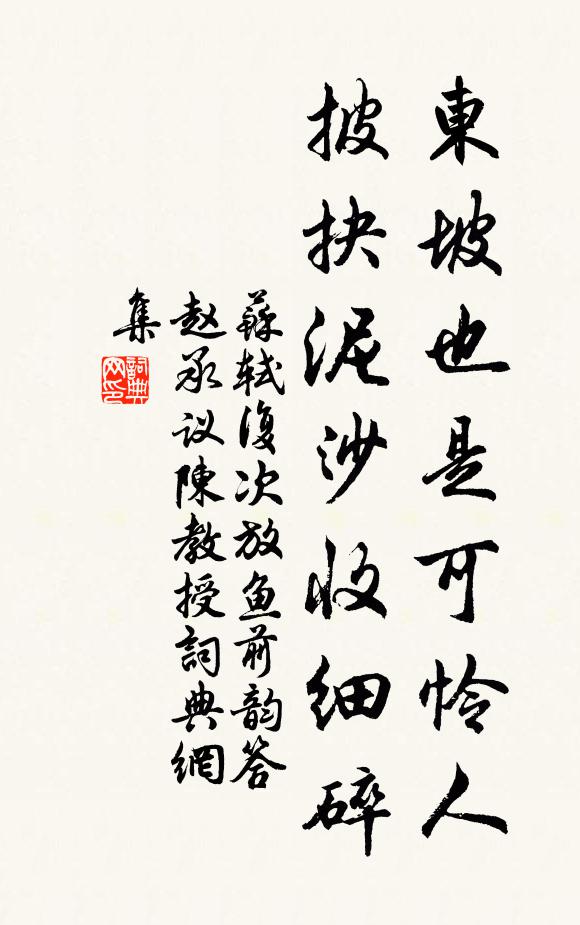 東坡也是可怜人
披抉泥沙收细碎
蘇轼復次放鱼前韵答
赵承议陳教授詞典網
集
詞典
网印